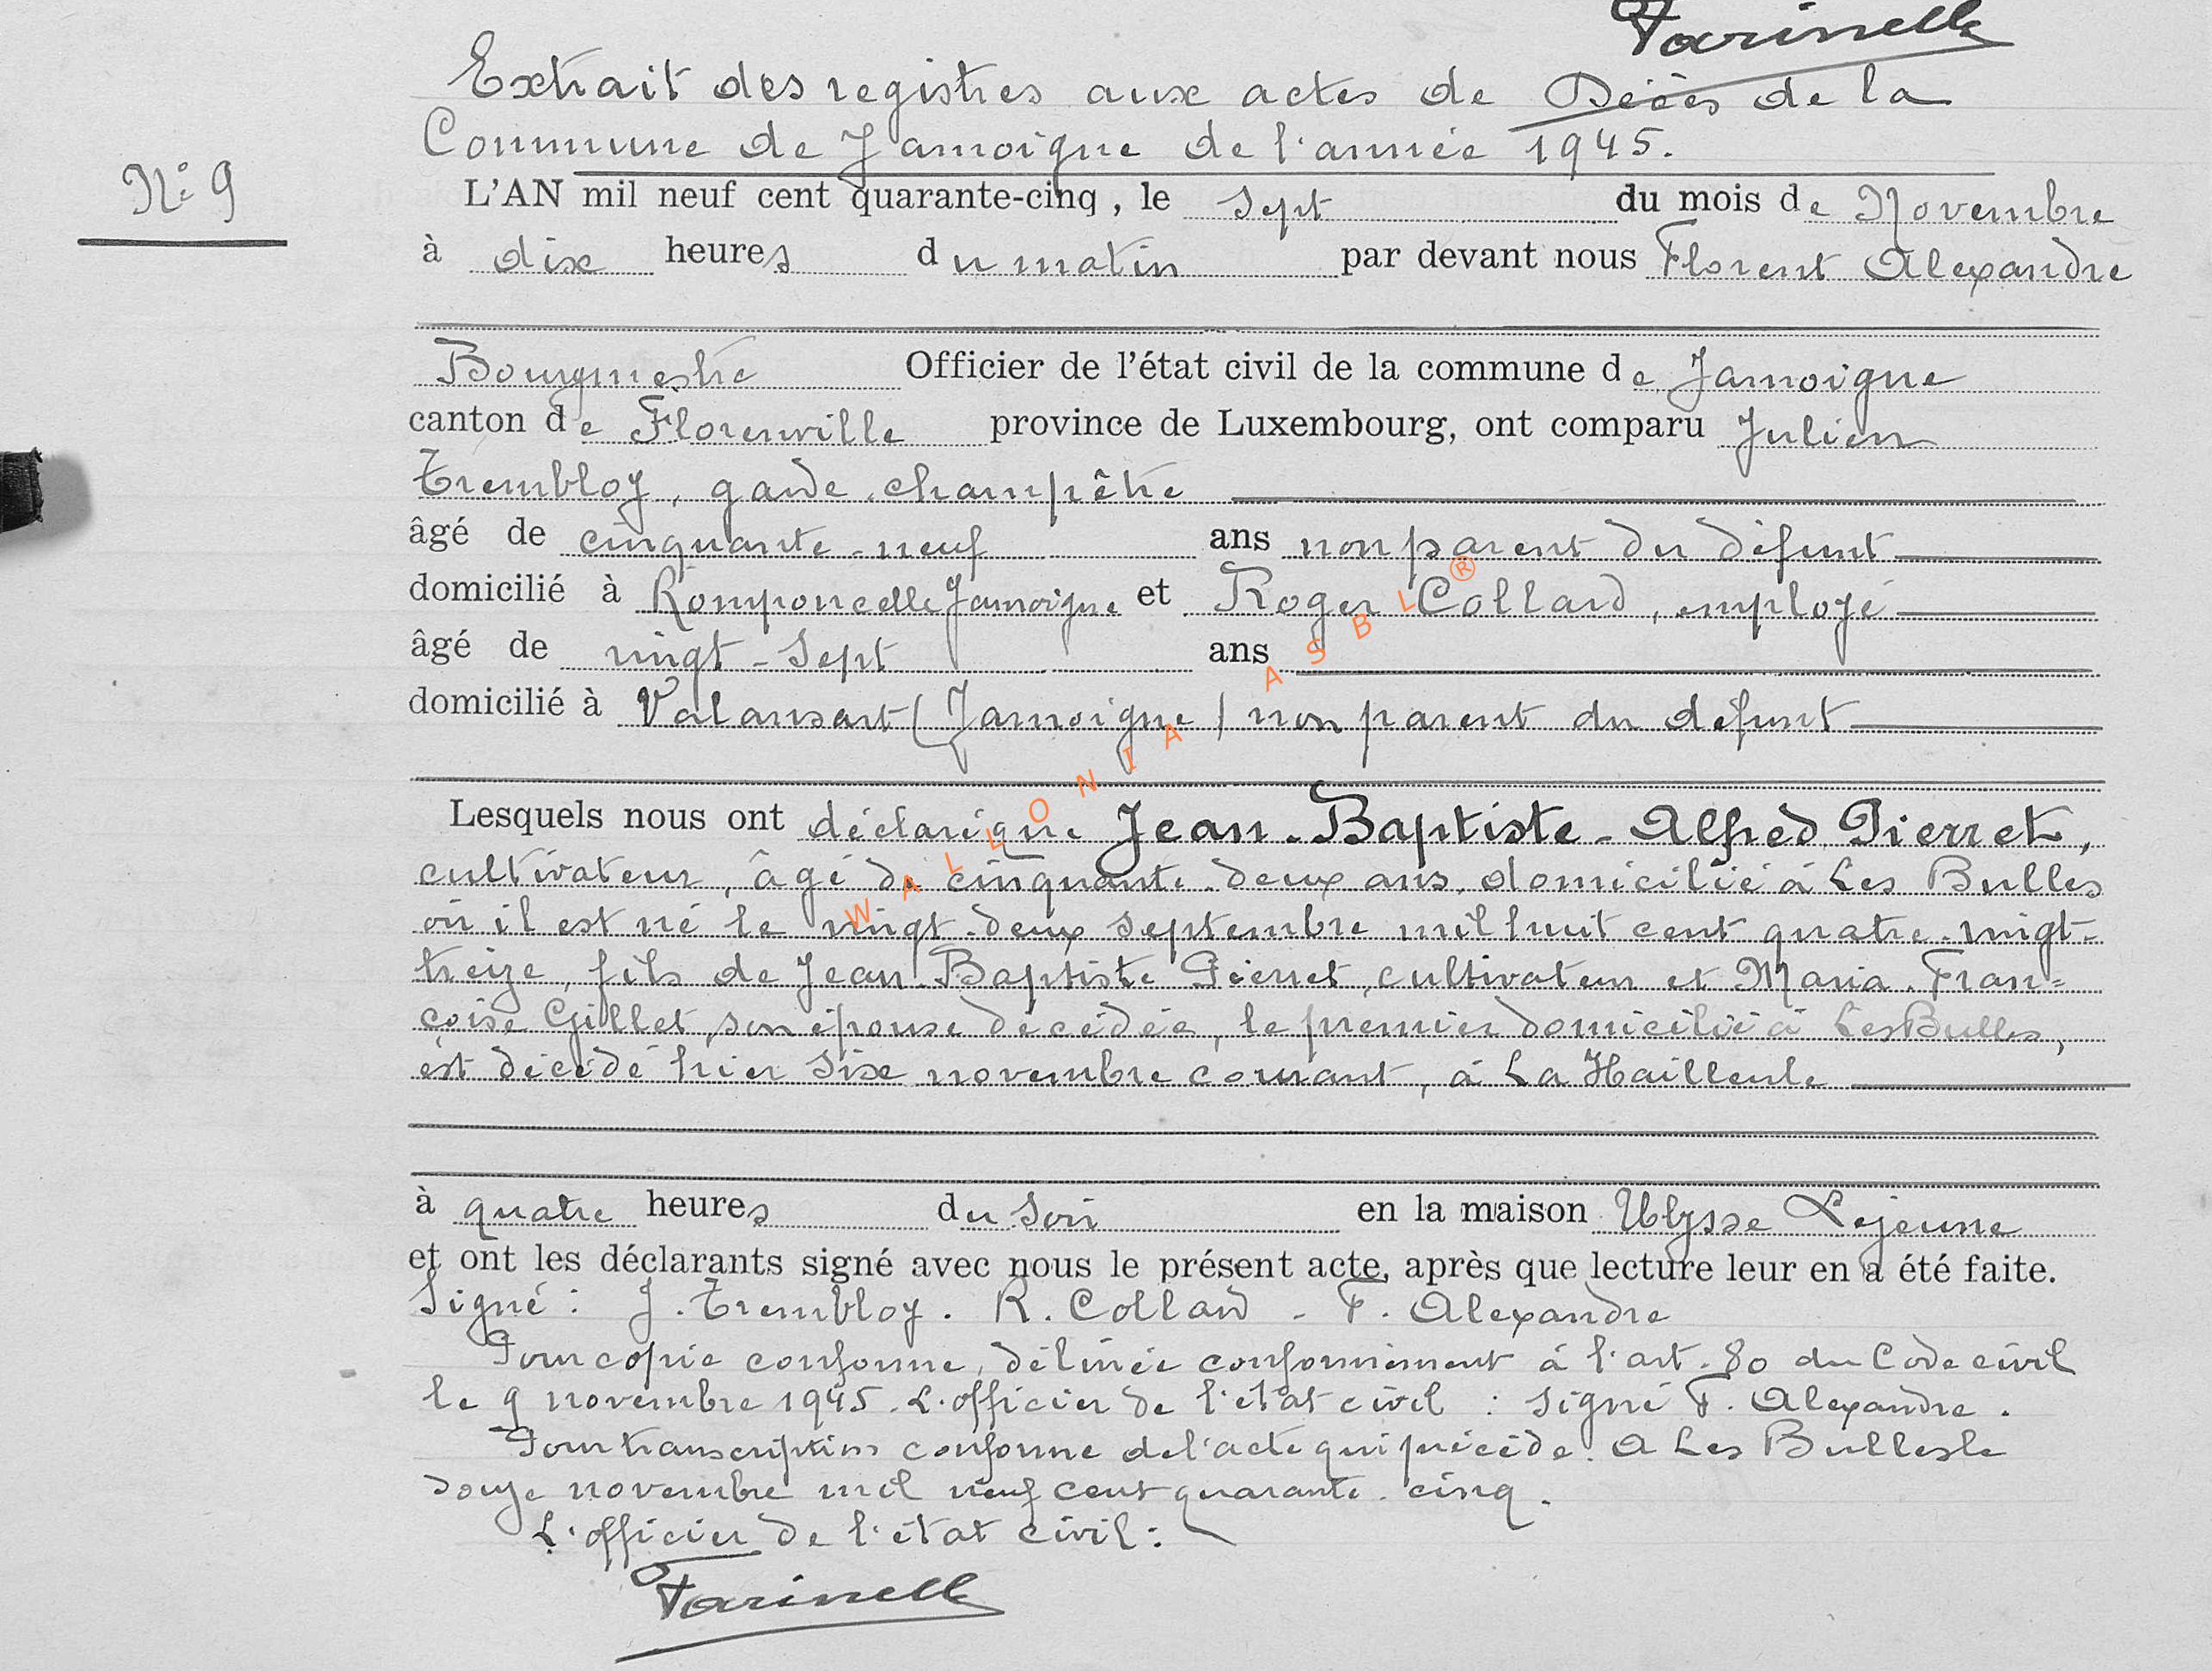 Farinelle
Extrait des registres aux actes de Décès de la
Commune de Jamoigne de l'année 1945.
N° 9
L'AN mil neuf cent quarante-cinq, le sept du mois de Novembre
à dix heures du matin par devant nous Florent Alexandre
Bourgmestre Officier de l'état civil de la commune de Jamoigne
canton de Florenville province de Luxembourg, ont comparu Julien
Trembloy, garde-champêtre
âgé de cinquante-neuf ans non parent du défunt
domicilié à Romponcelle Jamoigne et Roger Collard, employé
âgé de vingt-sept ans
domicilié à Valansart (Jamoigne) non parent du défunt
Lesquels nous ont déclaré que Jean-Baptiste-Alfred Pierret,
cultivateur, âgé de cinquante-deux ans, domicilié à Les Bulles
où il est né le vingt-deux septembre mil huit cent quatre-vingt-
treize, fils de Jean-Baptiste Pierret, cultivateur et Maria-Fran=
çoise Gillet, son épouse décédée, le premier domicilié à Les Bulles,
est décédé hier six novembre courant, à La Hailleule
à quatre heures du soir en la maison Ulysse Lejeune
et ont les déclarants signé avec nous le présent acte, après que lecture leur en a été faite.
Signé : J. Trembloy. R. Collard - F. Alexandre
Pour copie conforme, délivrée conformément à l'art. 80 du Code civil
le 9 novembre 1945. L'officier de l'état civil : signé F. Alexandre.
Pour transcription conforme de l'acte qui précède. A Les Bulles le
douze novembre mil neuf cent quarante-cinq.
L'officier de l'état civil :
Farinelle
WALLONIA ASBL ®